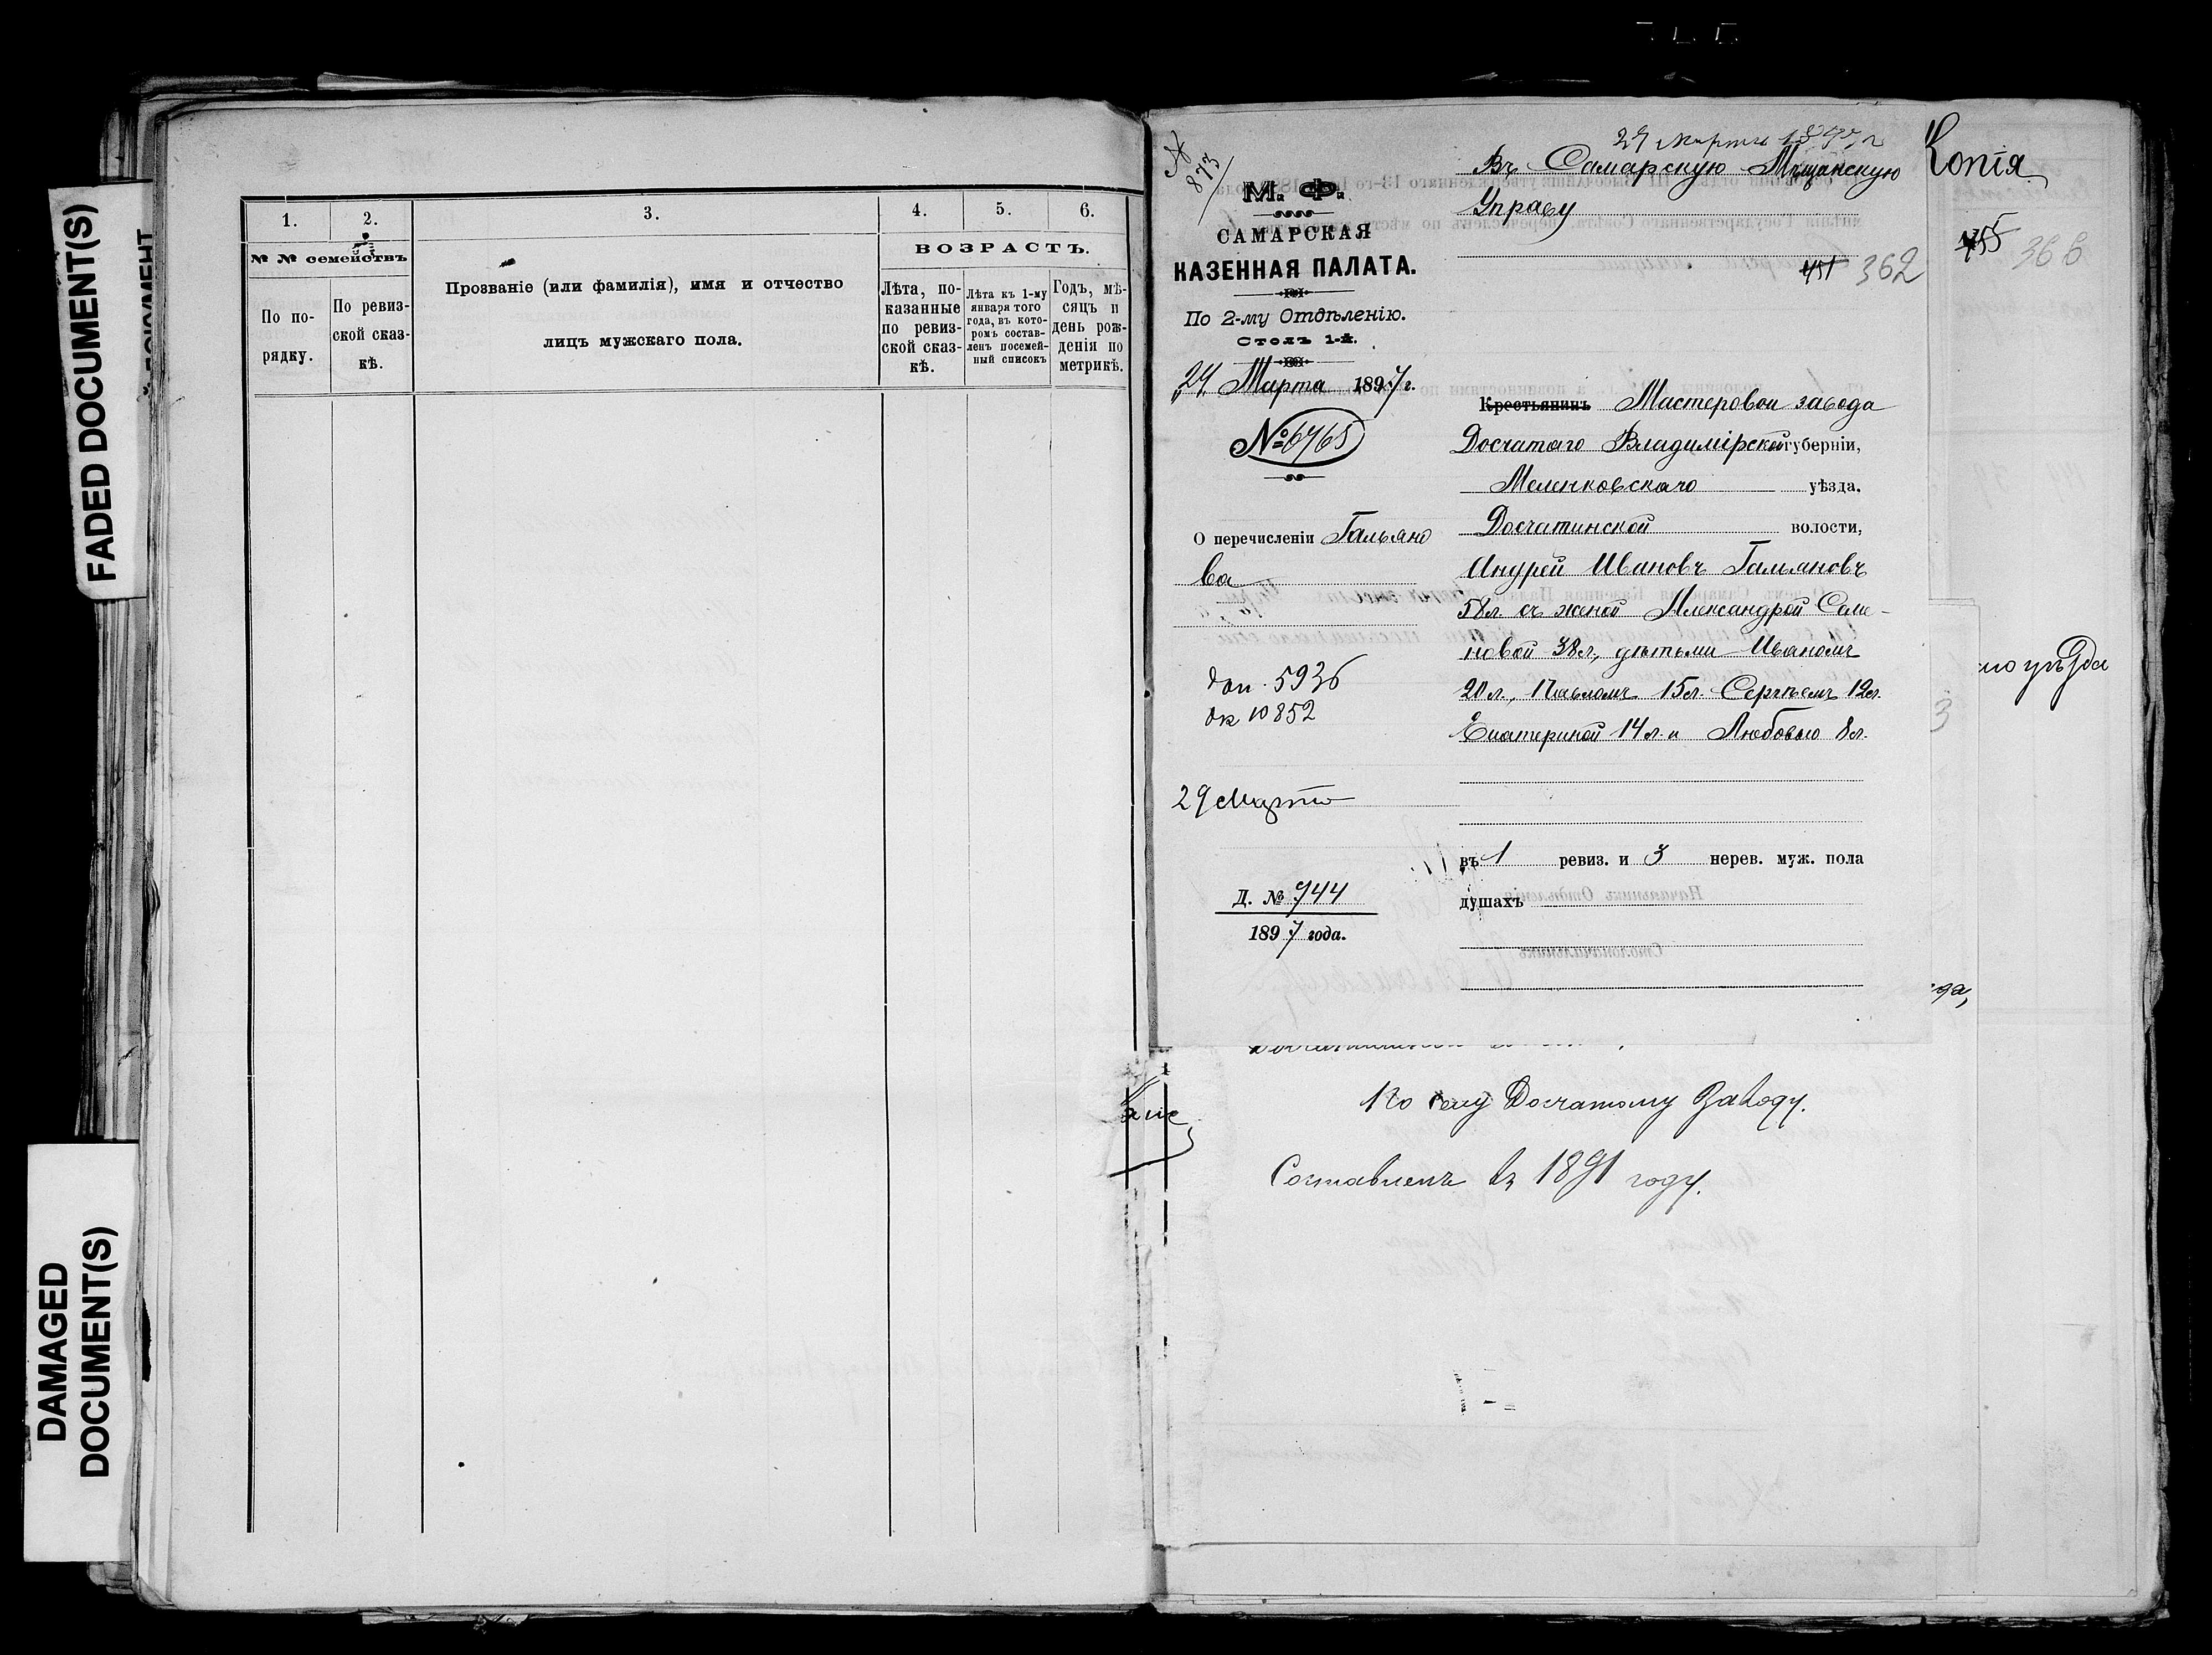 FADED DOCUMENT(S)
DAMAGED
DOCUMENT(S)
1.
2.
3.
4.
5.
6.
№ № семействъ
ВОЗРАСТЪ.
По по-
рядку.
По ревиз-
ской сказ-
кѣ.
Прозваніе (или фамилія), имя и отчество
лицъ мужскаго пола.
Лѣта, по-
казанные
по ревиз-
ской сказ-
кѣ.
Лѣта къ 1-му
января того
года, въ кото-
ромъ состав-
ленъ посемей-
ный списокъ
Годъ, мѣ-
сяцъ и
день рож-
денія по
метрикѣ.
№
873
М. Ф.
САМАРСКАЯ
КАЗЕННАЯ ПАЛАТА.
По 2-му Отдѣленію.
Столъ 1-й.
24 Марта 1897 г.
№ 6765
О перечисленіи Гальяно
ва
5936
10852
29 Марта
Д. № 744
1897 года.
Марта 1897 г
Въ Самарскую Мѣщанскую
Управу
451 362
Крестьянинъ Мастеровой завода
Досчатаго Владимірской губерніи,
Меленковскаго уѣзда.
Досчатинской волости,
Андрей Ивановъ Гальяновъ
58 л. съ женой Александрой Семе-
новой 38 л., дѣтьми Иваномъ
20 л., Павломъ 15 л. Сергѣемъ 12 л.
Екатериной 14 л. и Любовью 8 л.
въ 1 ревиз. и 3 нерев. муж. пола
душахъ
Копія
455 366
уѣзда
3
да,
По селу Досчатому Заводу.
Составленъ въ 1891 году.